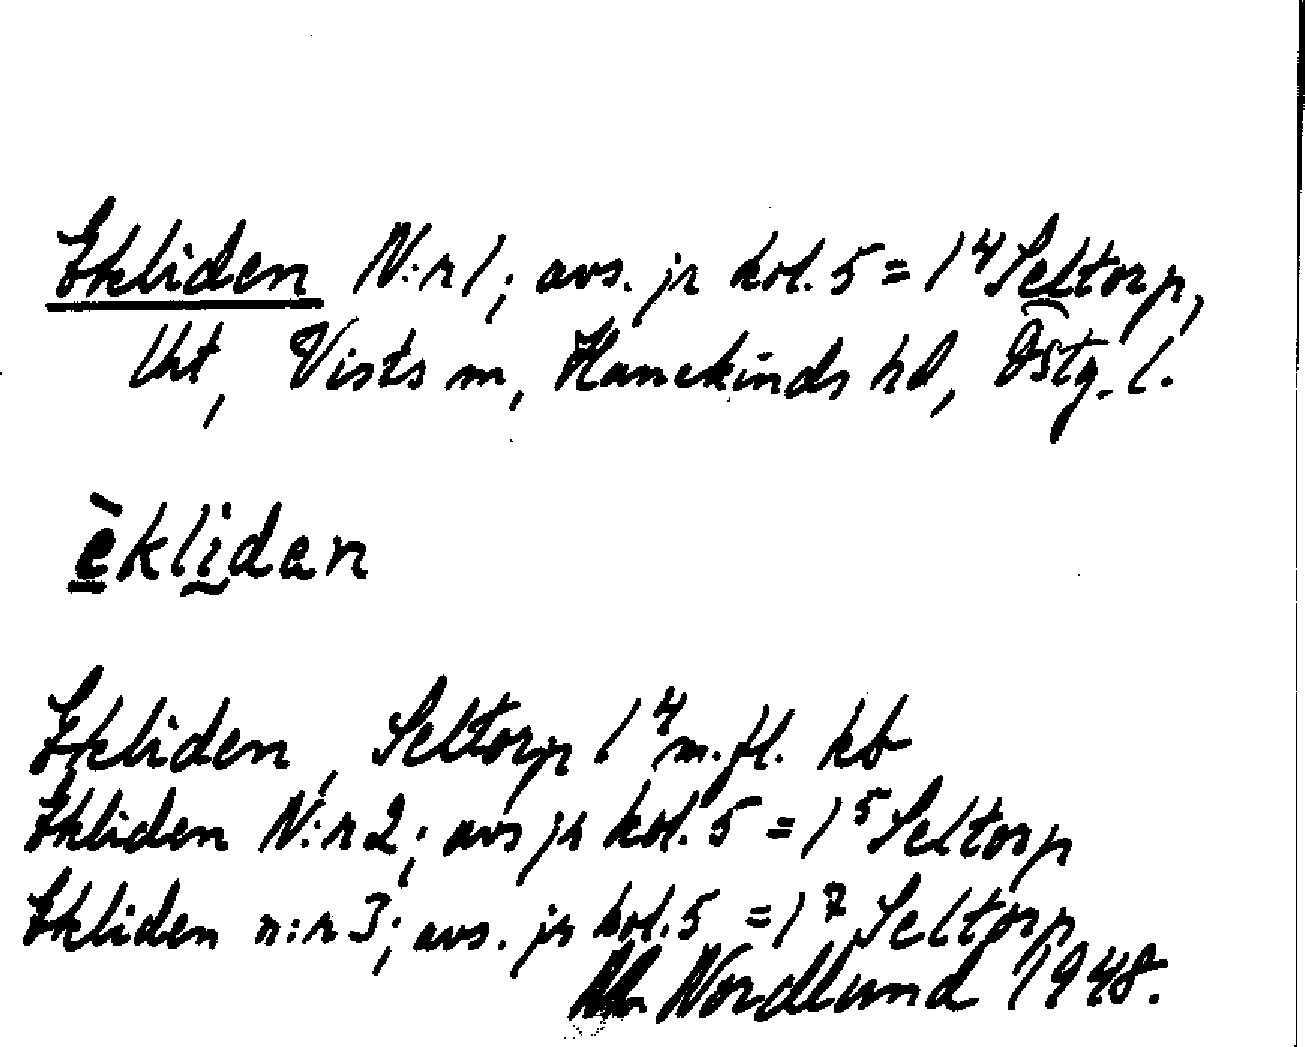 Ekliden N:r 1; avs. jr kol. 5 = 1⁴ Seltorp,
Uht, Vists sn, Hanekinds hd, Östg. l.
èklidan
Ekliden, Seltorp 1⁴ m.fl. kb
Ekliden N:r 2; avs jr kol. 5 = 1⁵ Seltorp
Ekliden n:r 3; avs. jr kol. 5 = 1⁷ Seltorp
Nordlund 1948.